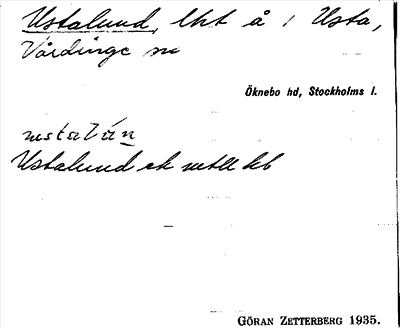 Ustalund, lht å 1 Usta,
Vårdinge sn
Öknebo hd, Stockholms l.
ustalun
Ustalund ek
GÖRAN ZETTERBERG 1935.